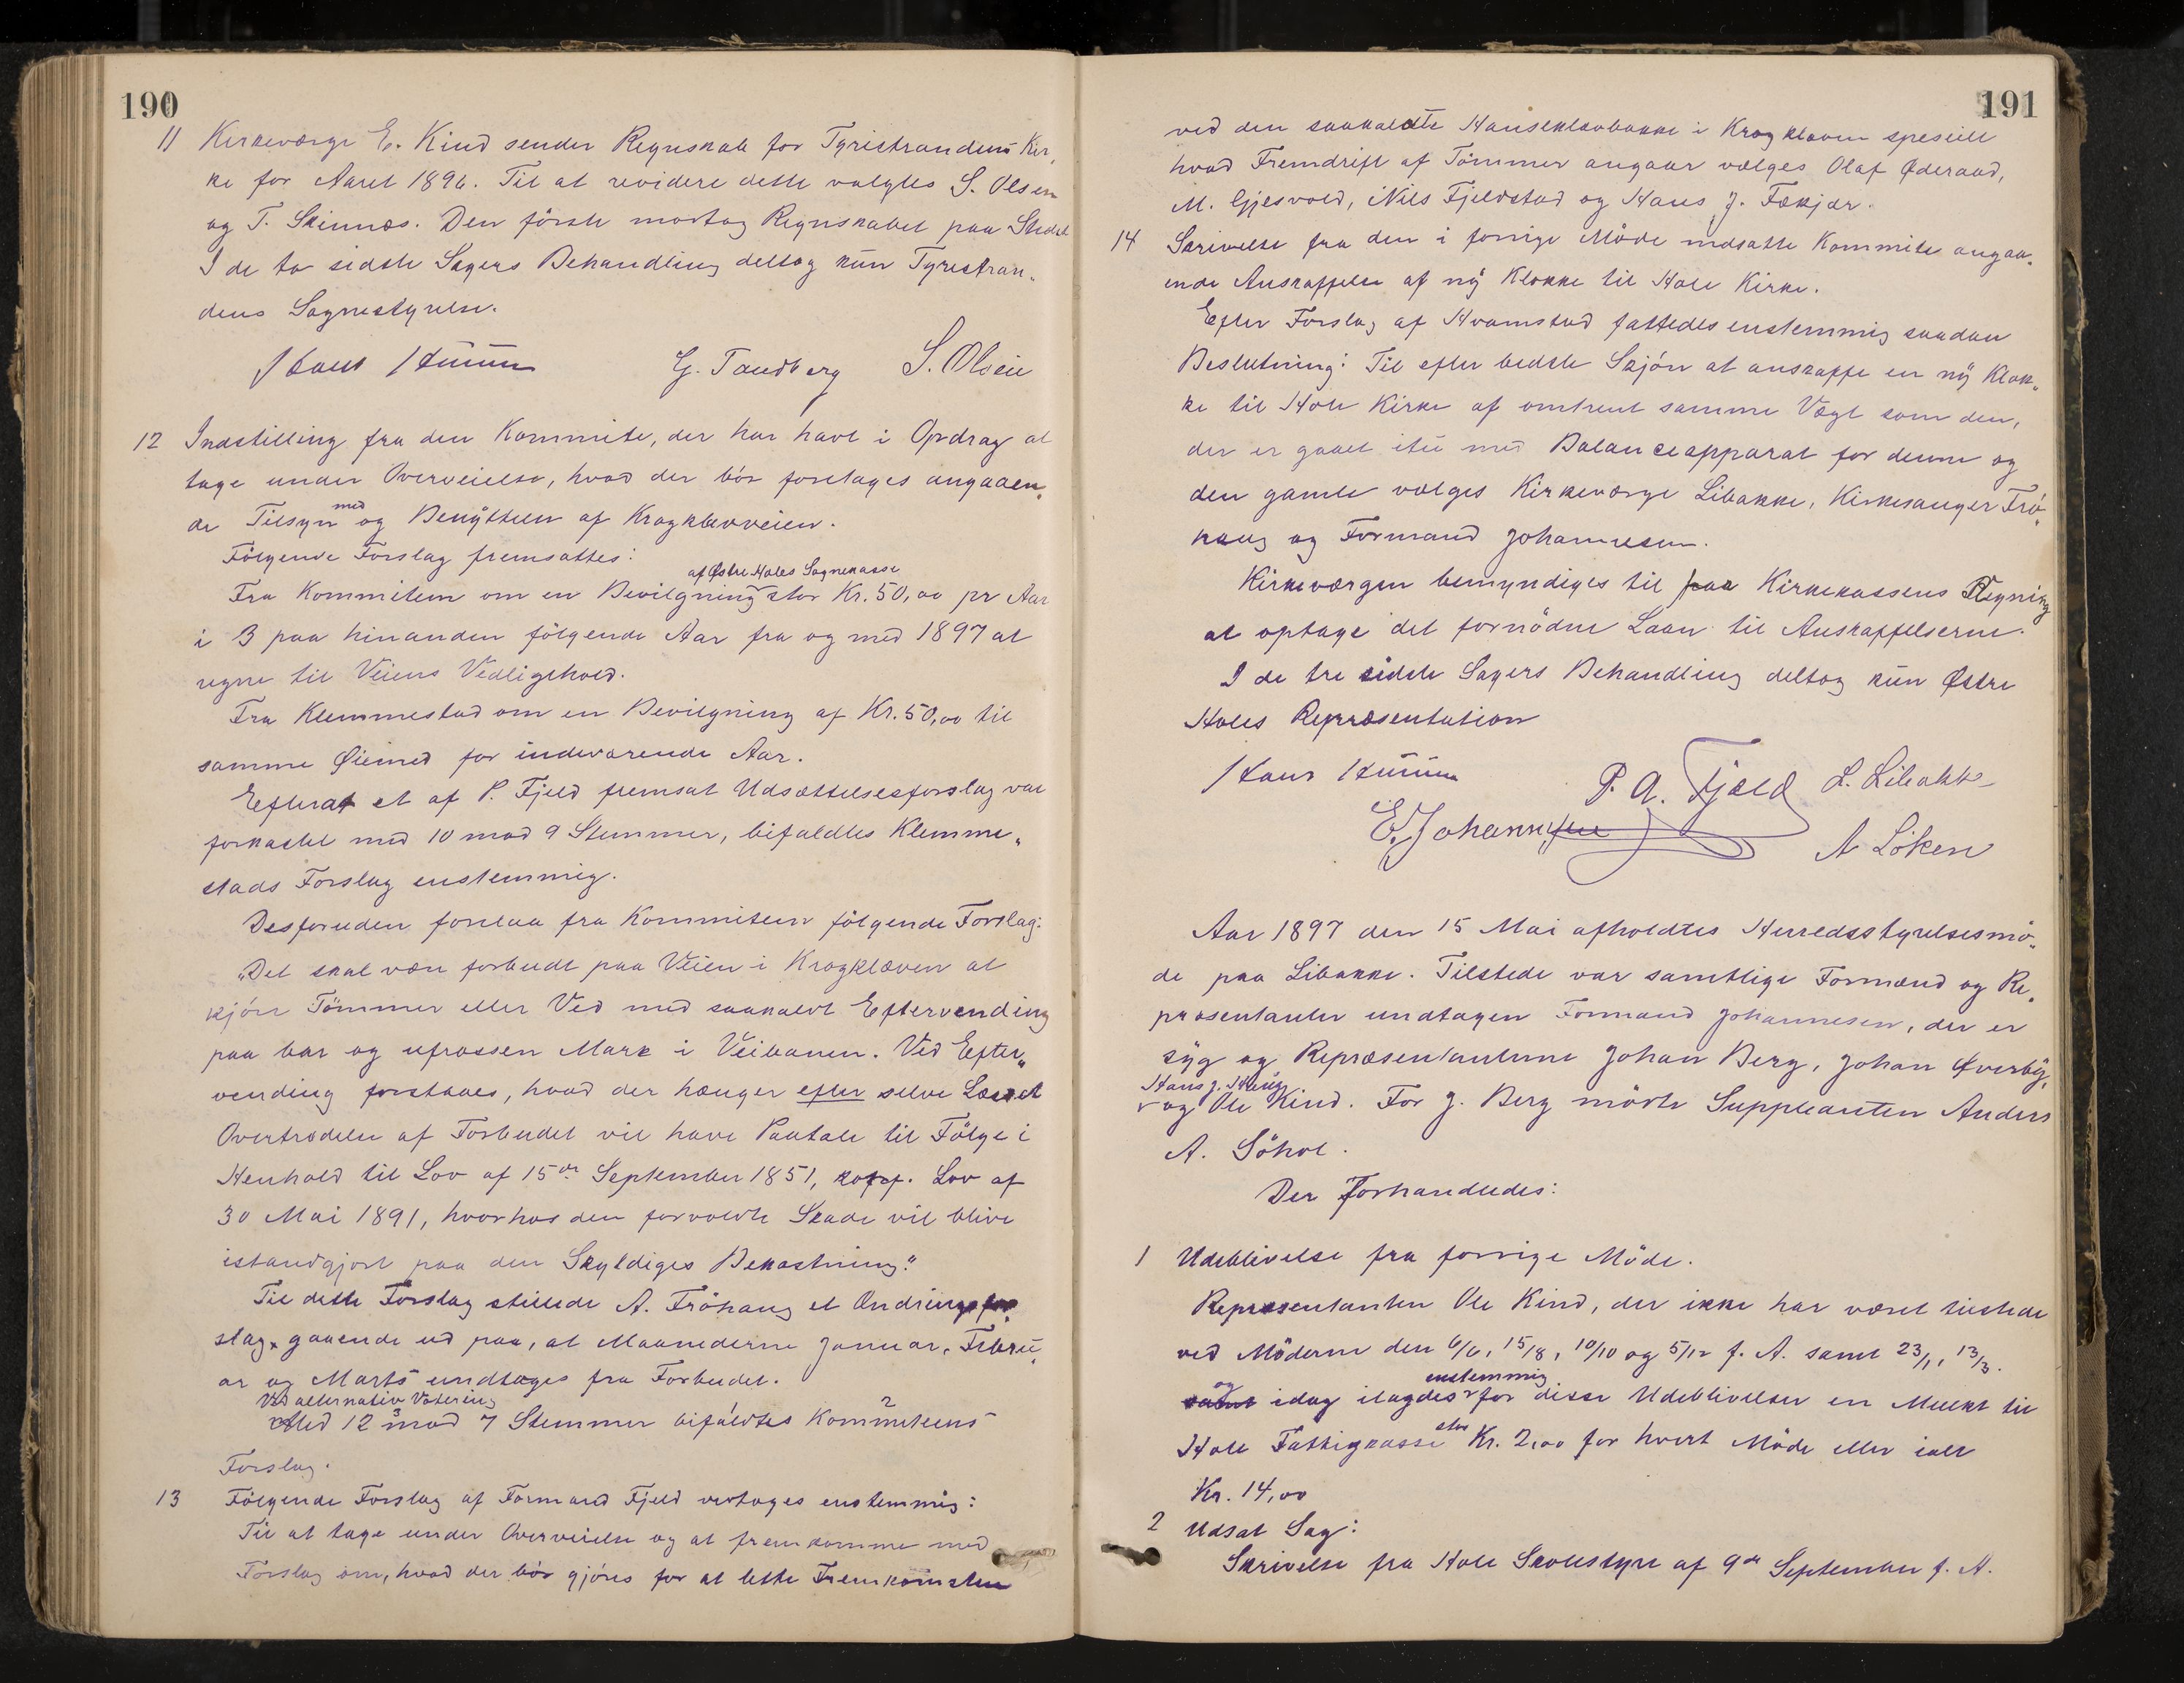 190
11 Kirkeværge E. Kind sender Regnskab for Tyristrandens Kir„
ke for Aaret 1896. Til at revidere dette valgtes S. Olsen
og T. Skinnæs. Den förste mottog Regnskabet paa Stedet
I de to sidste Sagers Behandling deltog kun Tyristran„
dens Sognestyrelse.
Hans G. Tandberg S. Olsen
12 Indstilling fra den Kommite, der har havt i Opdrag at
tage under Overveielse, hvad der bör foretages angaaen„
de Tilsyn med og Benyttelsen af Krogklevveien.
Fölgende Forslag fremsattes:
af Østre Holes Sognekasse
Fra Kommiteen om en Bevilgning stor Kr. 50,00 pr Aar
i 3 paa hinanden fölgende Aar fra og med 1897 at
regne til Veiens Vedligehold.
Fra Klemmestad om en Bevilgning af Kr. 50,00 til
samme Øiemed for indeværende Aar.
Efterat et af P. Fjeld fremsat Udsættelsesforslag var
forkastet med 10 mod 9 Stemmer, bifaldtes Klemme„
stads Forslag enstemmig.
Desforuden forelaa fra Kommiteen fölgende Forslag:
„Det skal være forbudt paa Veien i Krogkleven at
kjöre Tömmer eller Ved med saakaldt Eftervending
paa bar og ufrossen Mark i Veibanen. Ved Efter„
vending forstaaes, hvad der hænger efter selve Læsset
Overtrædelse af Forbudet vil have Paatale til Fölge i
Henhold til Lov af 15de September 1851, Lov af
30 Mai 1891, hvorhos den forvoldte Skade vil blive
istandgjort paa den Skyldiges Bekostning."
Til dette Forslag stillede A. Fröhaug et Ændringsfor„
slag, gaaende ud paa, at Maanederne Januar, Febru„
ar og Marts undtages fra Forbudet.
Ved alternativ Votering
Med 12 mod 7 Stemmer bifaldtes Kommiteens
Forslag.
13 Fölgende Forslag af Formand Fjeld vedtoges enstemmig:
Til at tage under Overveielse og at fremkomme med
Forslag om, hvad der bör gjöres for at lette Fremkomsten
191
ved den saakaldte Hanseklevbakke i Krogkleven spesielt
hvad Fremdrift af Tömmer angaar vælges Olaf Øderaad,
M. Gjesvold, Nils Fjeldstad og Hans J. Fækjær.
14 Skrivelse fra den i forrige Möde nedsatte Kommite angaa„
ende Anskaffelse af ny Klokke til Hole Kirke.
Efter Forslag af Hvamstad fattedes enstemmig saadan
Beslutning: Til efter bedste Skjön at anskaffe en ny Klok„
ke til Hole Kirke af omtrent samme Vægt som den,
der er gaaet itu med Balanceapparat for denne og
den gamle vælges Kirkeværge Libakke, Kirkesanger Frö„
haug og Formand Johannesen.
Kirkeværgen bemyndiges til paa Kirkekassens Regning
at optage det fornödne Laan til Anskaffelserne.
I de tre sidste Sagers Behandling deltog kun Østre
Holes Repræsentation
Hans P. A. Fjeld L. Libakke
E. Johannesen A Löken
Aar 1897 den 15 Mai afholdtes Herredsstyrelsesmö„
de paa Libakke. Tilstede var samtlige Formænd og Re„
præsentanter undtagen Formand Johannesen, der er
syg og Repræsentanterne Johan Berg, Johan Øverby,
Hans J. Haug
og Ole Kind. For J. Berg mödte Suppleanten Anders
A. Söhol.
Der Forhandledes:
1 Udeblivelse fra forrige Möde.
Repræsentanten Ole Kind, der ikke har været tilstede
ved Möderne den 6/6, 15/8, 10/10 og 5/12 f. A. samt 23/1, 13/3.
og enstemmig
samt idag ilagdes for disse Udeblivelser en Mulkt til
Hole Fattigkasse stor Kr. 2,00 for hvert Möde eller ialt
Kr. 14,00
2 Udsat Sag:
Skrivelse fra Hole Skolestyre af 9de September f. A.